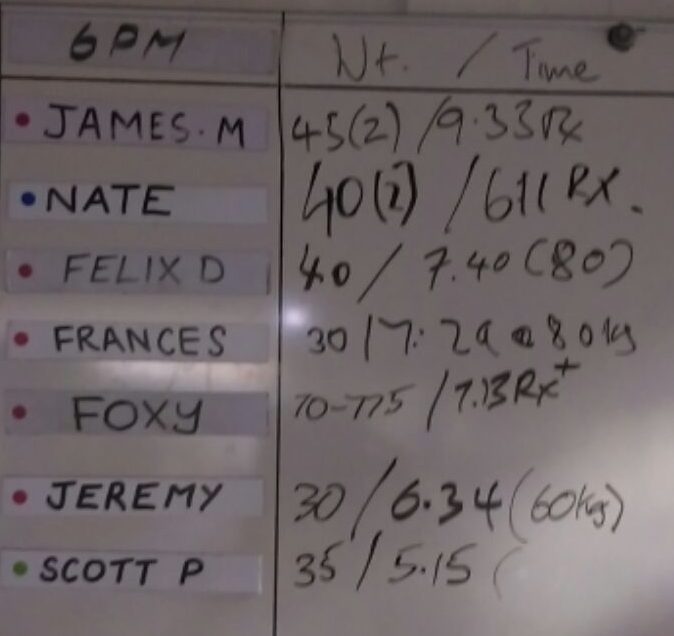 6PM Wt. / Time
JAMES. M 45(2) /9.33 Rx
NATE 40(2) /611 RX.
FELIX D 40/ 7.40 (80)
FRANCES 30 /7: 29 @ 80kg
FOXY 70-775 /7.13 Rx+
JEREMY 30/6.34 (60kg)
SCOTT P 35/5.15 (